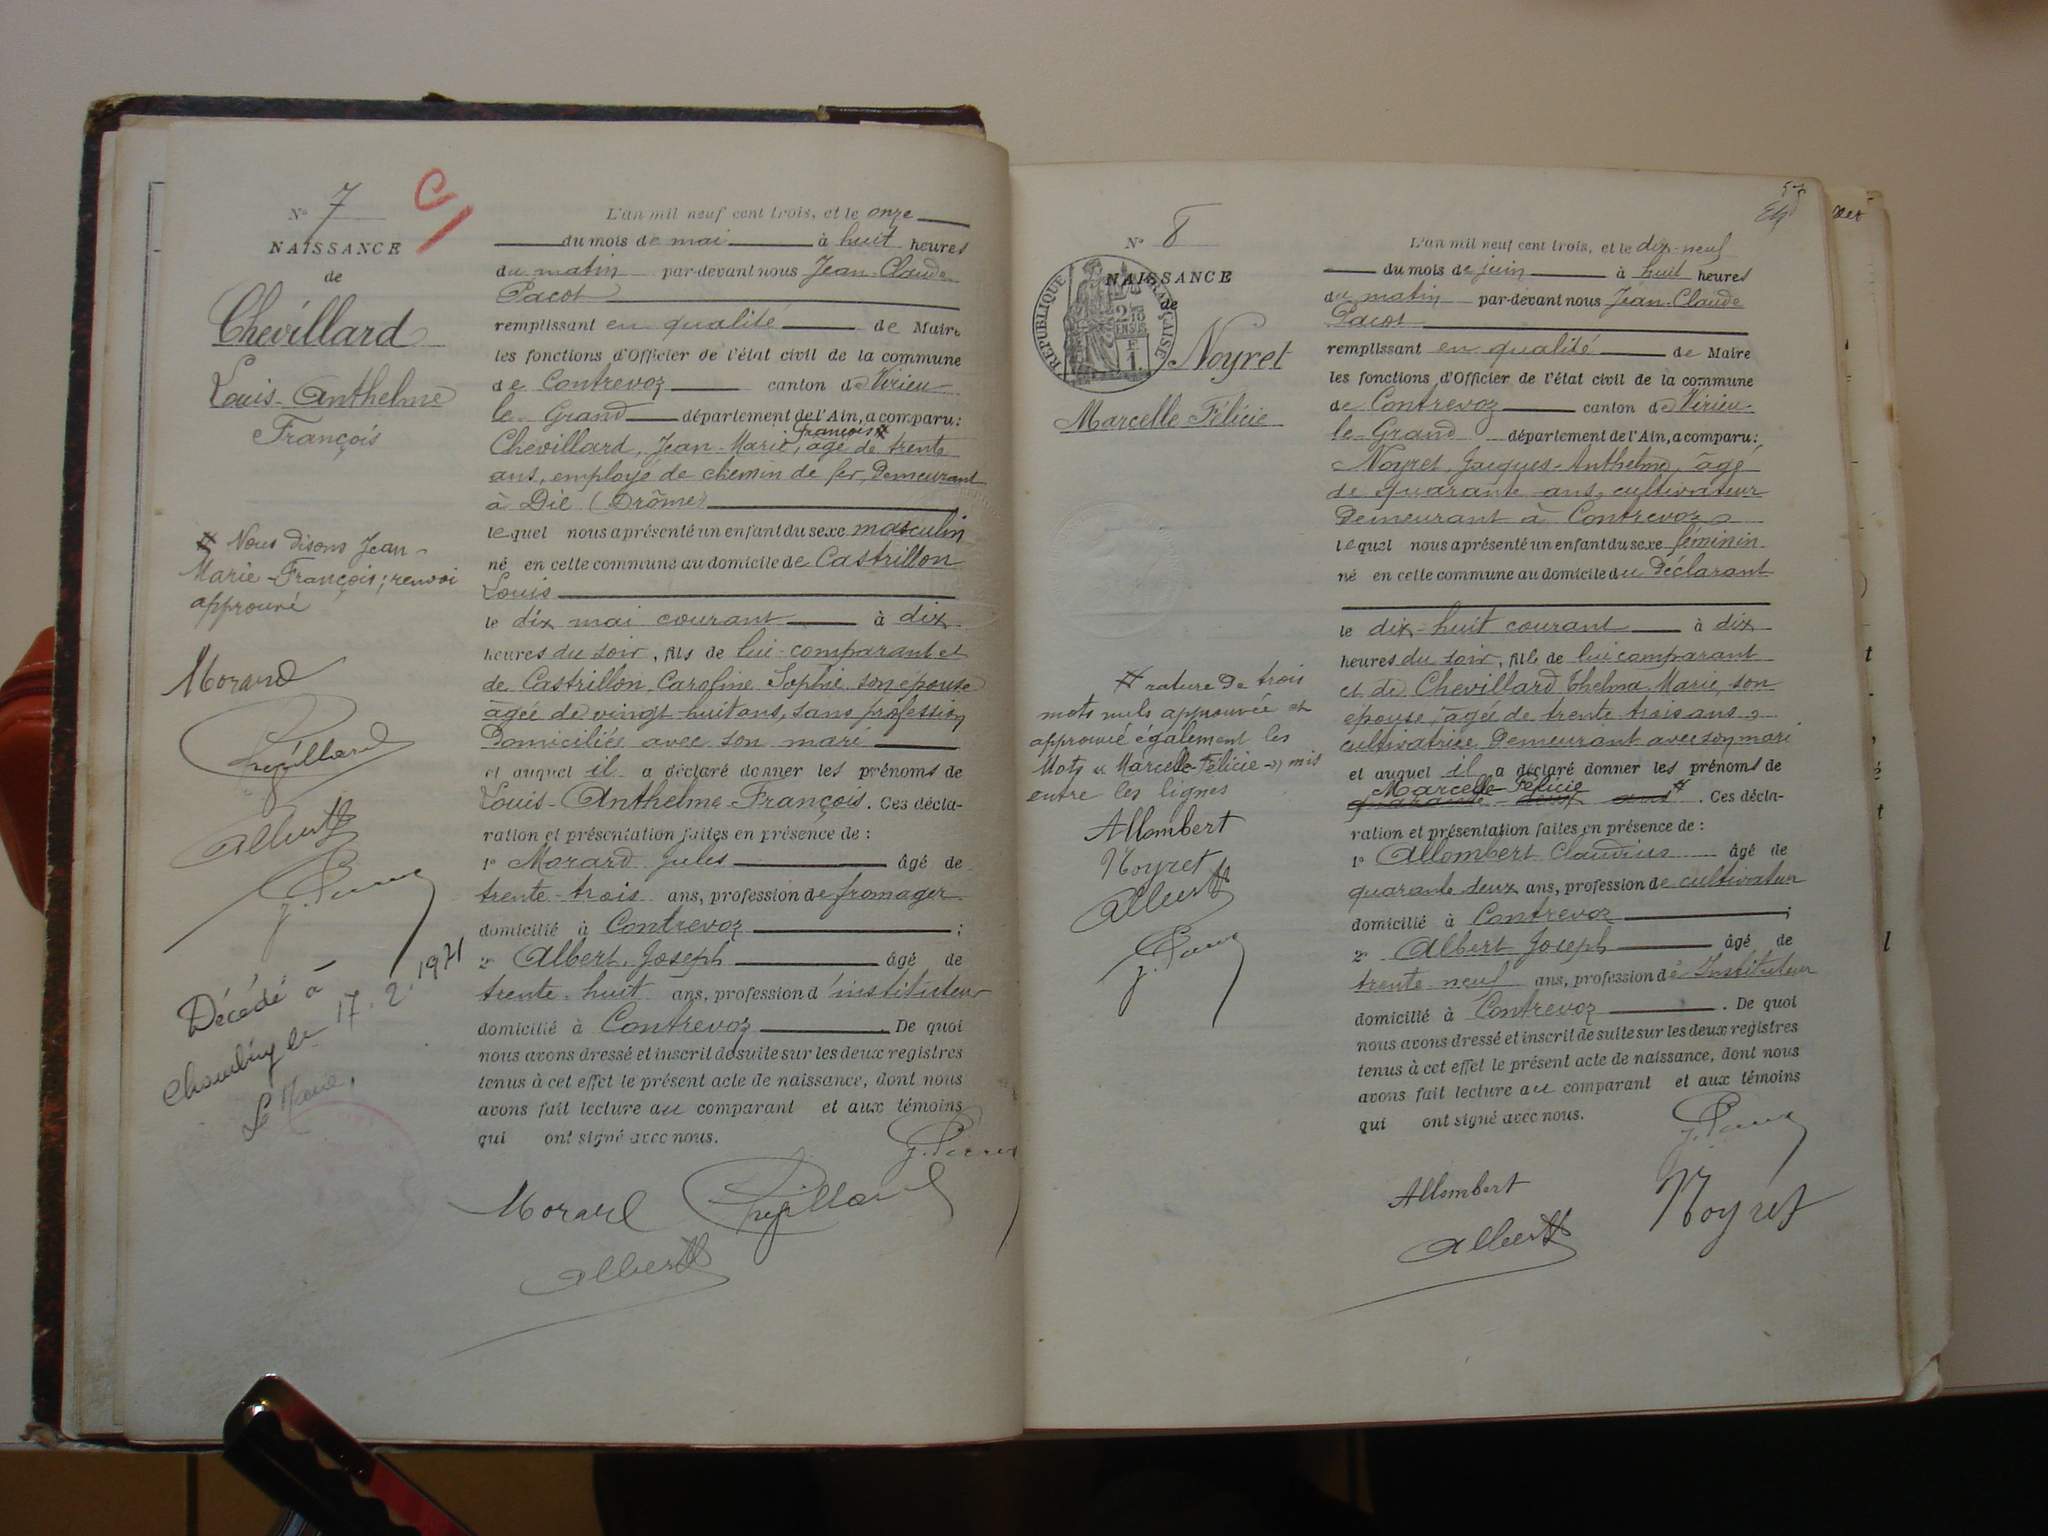 N° 7
NAISSANCE
de
Chevillard
Louis-Anthelme
François
# Nous disons Jean-
Marie-François; renvoi
approuvé
Morard
Chevillard
Albert
J. Pacot
Décédé à
Chambéry le 17.2.1971
Le Maire,
L'an mil neuf cent trois, et le onze
du mois de mai à huit heures
du matin par-devant nous Jean-Claude
Pacot
remplissant en qualité de Maire
les fonctions d'Officier de l'état civil de la commune
de Contrevoz canton de Virieu-
le-Grand département de l'Ain, a comparu:
François #
Chevillard, Jean-Marie, âgé de trente
ans, employé de chemin de fer, demeurant
à Die (Drôme)
lequel nous a présenté un enfant du sexe masculin
né en cette commune au domicile de Castrillon
Louis
le dix mai courant à dix
heures du soir, fils de lui-comparant et
de Castrillon, Caroline Sophie son épouse
âgée de vingt-huit ans, sans profession
Domiciliée avec son mari
et auquel il a déclaré donner les prénoms de
Louis-Anthelme-François. Ces décla-
ration et présentation faites en présence de :
1° Morard Jules âgé de
trente-trois ans, profession de fromager
domicilié à Contrevoz ;
2° Albert, Joseph âgé de
trente-huit ans, profession d'instituteur
domicilié à Contrevoz . De quoi
nous avons dressé et inscrit de suite sur les deux registres
tenus à cet effet le présent acte de naissance, dont nous
avons fait lecture au comparant et aux témoins
qui ont signé avec nous.
J. Pacot
Morard Chevillard
Albert
N° 8
NAISSANCE
de
RÉPUBLIQUE FRANÇAISE
Noyret
Marcelle Félicie
# rature de trois
mots nuls approuvée et
approuvé également les
Mots « Marcelle-Félicie » mis
entre les lignes
Allombert
Noyret
Albert
J. Pacot
L'an mil neuf cent trois, et le dix-neuf
du mois de juin à huit heures
du matin par-devant nous Jean-Claude
Pacot
remplissant en qualité de Maire
les fonctions d'Officier de l'état civil de la commune
de Contrevoz canton de Virieu-
le-Grand département de l'Ain, a comparu:
Noyret, Jacques-Anthelme, âgé
de quarante ans, cultivateur
Demeurant à Contrevoz
lequel nous a présenté un enfant du sexe féminin
né en cette commune au domicile du Déclarant
le dix-huit courant à dix
heures du soir, fille de lui comparant
et de Chevillard Thelma Marie, son
épouse, âgée de trente trois ans,
cultivatrice Demeurant avec son mari
et auquel il a déclaré donner les prénoms de
Marcelle-Félicie
quarante-deux ans # . Ces décla-
ration et présentation faites en présence de :
1° Allombert Claudius âgé de
quarante deux ans, profession de cultivateur
domicilié à Contrevoz ;
2° Albert Joseph âgé de
trente-neuf ans, profession d'Instituteur
domicilié à Contrevoz . De quoi
nous avons dressé et inscrit de suite sur les deux registres
tenus à cet effet le présent acte de naissance, dont nous
avons fait lecture au comparant et aux témoins
qui ont signé avec nous.
J. Pacot
Allombert Noyret
Albert